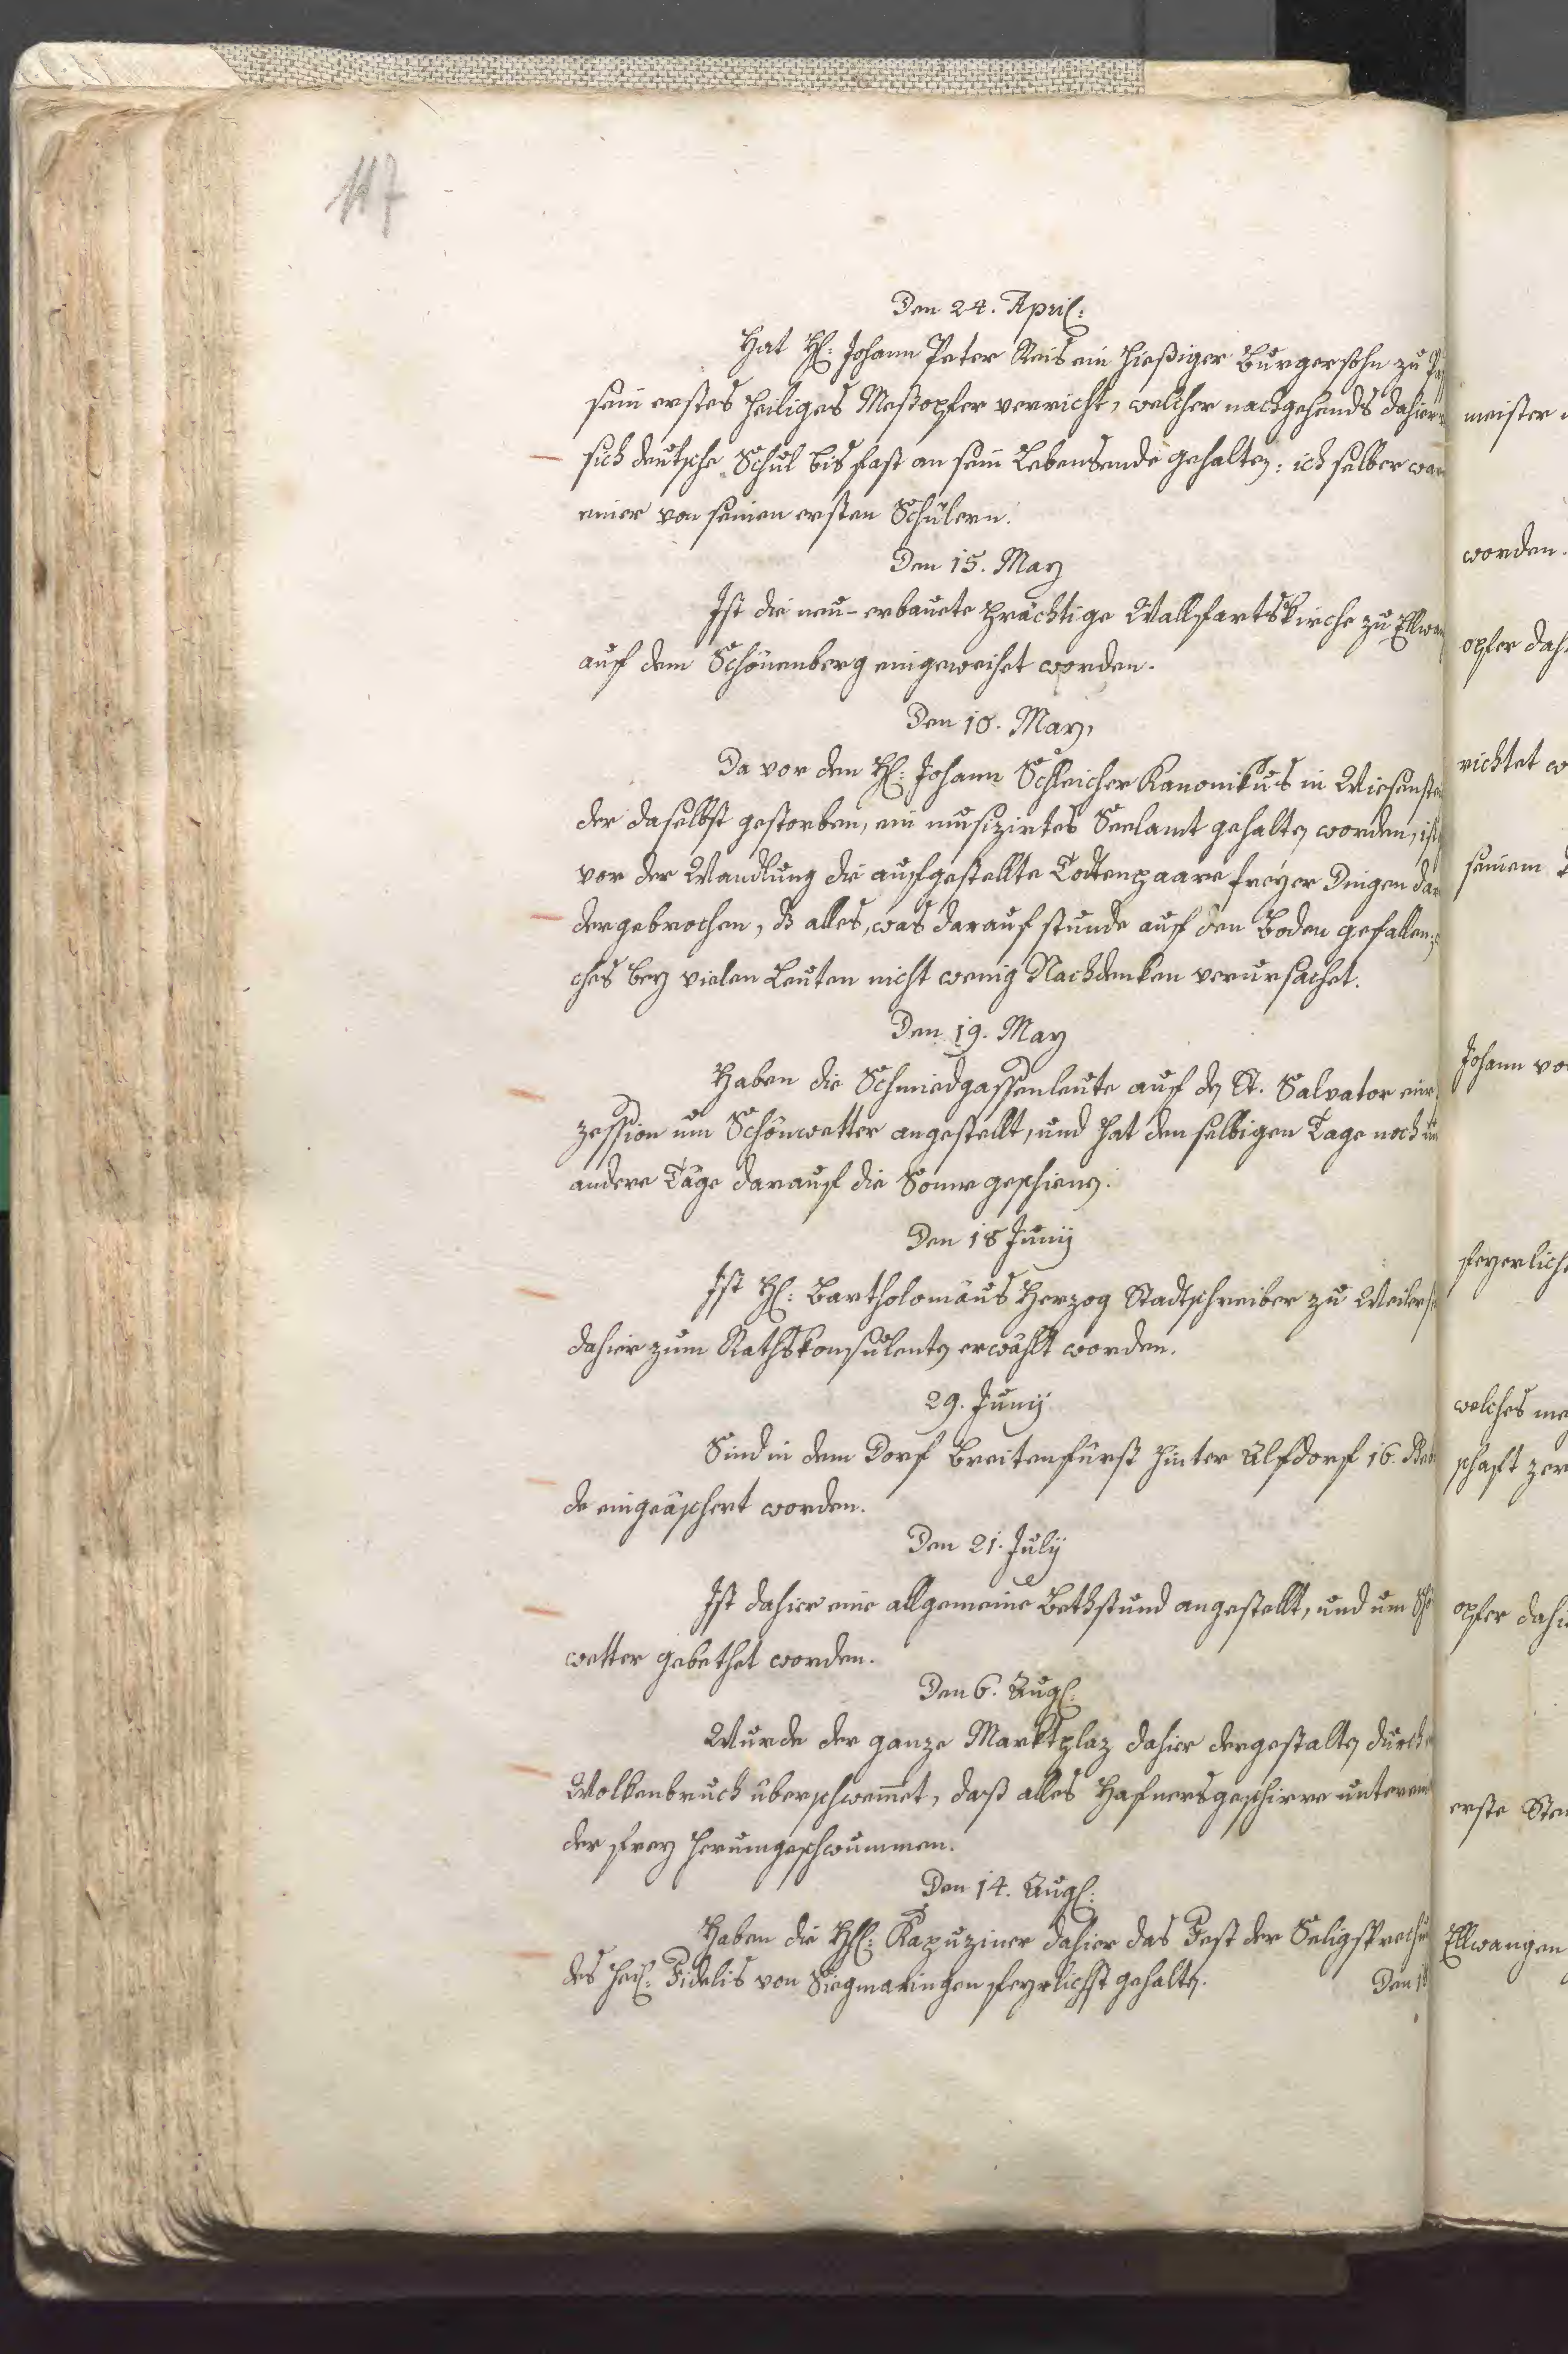 117
Den 24. April:
Hat H: Johann Peter Reis ein hießiger Burgersohn zu
sein erstes heiliges Meßopfer verricht, welcher nachgehends dahier
sich deutsche Schul bis fast an sein Lebensende gehalten: ich selber war
einer von seinen ersten Schülern.
Den 15. May
Ist die neu-erbauete prächtige Wallfartskirche zu Ellwan
auf dem Schönenberg eingeweihet worden.
Den 18. May,
Da vor den H: Johann Schleicher Kanonikus in Wiesenste
der daselbst gestorben, ein musizirtes Seelamt gehalten worden, ist
vor der Wandlung die aufgestellte Todtenpaare freyer Dingen dar
dergebrochen, ds alles, was darauf stunde auf den Boden gefallen,
ches bey vielen Leuten nicht wenig Nachdenken verursachet.
Den 19. May
Haben die Schmidgassenleute auf den St. Salvator eine
zession um Schönwetter angestellt, und hat den selbigen Tage noch un
andere Täge darauf die Sonne geschienen.
Den 18 Junij
Ist H: Bartholomäus Herzog Stadtschreiber zu Weilers
dahier zum Rathskonsulenten erwählt worden.
29. Junij
Sind in dem Dorf Breitenfürst hinter Alfdorf 16.
de eingeäschert worden.
Den 21. Julij
Ist dahier eine allgemeine Bethstund angestellt, und um Sch
wetter gebethet worden.
Den 6. Aug:
Wurde der ganze Marktplaz dahier dergestalten durch
Wolkenbruch überschwemet, daß alles Hafnersgeschirre unterein
der frey herumgeschwummen.
Den 14. Aug:
Haben die HH: Kapuziner dahier das Fest der Seligsprechu
des heil: Fidelis von Siegmaringen feyrlichst gehalten.
Den 18
meister
worden.
opfer dah
richtet w
seinem
Johann vo
feyerlich
welches me
schaft zer
opfer dahi
erste
Ellwangen